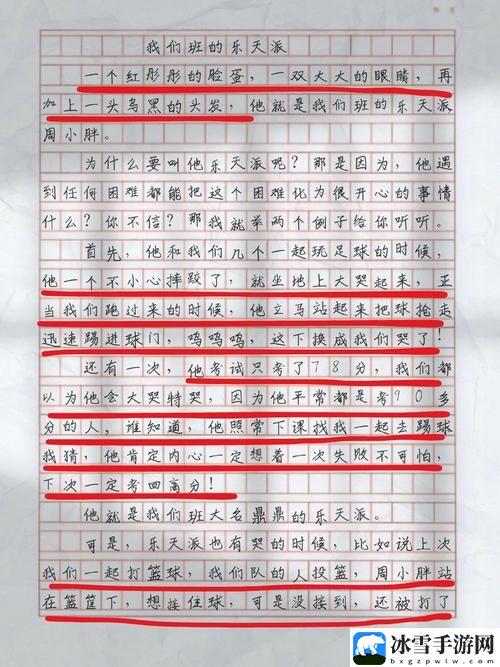 我们班的乐天派
一个红彤彤的脸蛋，一双大大的眼睛，再
加上一头乌黑的头发，他就是我们班的乐天派
周小胖。
为什么要叫他乐天派呢？那是因为，他遇
到任何困难都能把这个困难化为很开心的事情
什么？你不信？那我就举两个例子给你听听。
首先，他和我们几个一起玩足球的时候，
他一个不小心摔跤了，就坐地上大哭起来，正
当我们跑过来的时候，他立马站起来把球抢走
迅速踢进球门，呜呜呜，这下换成我们哭了！
还有一次，他考试只考了78分，我们都
以为他会大哭特哭，因为他平常都是考90多
分的人，谁知道，他照常下课找我一起去踢球
我猜，他肯定内心一定想着一次失败不可怕，
下次一定考回高分！
他就是我们班大名鼎鼎的乐天派。
可是，乐天派也有哭的时候，比如说上次
我们一起打篮球，我们队的人投篮，周小胖站
在篮筐下，想接住球，可是没接到，还被打了
冰雪手游网
bxgzpwlw.com